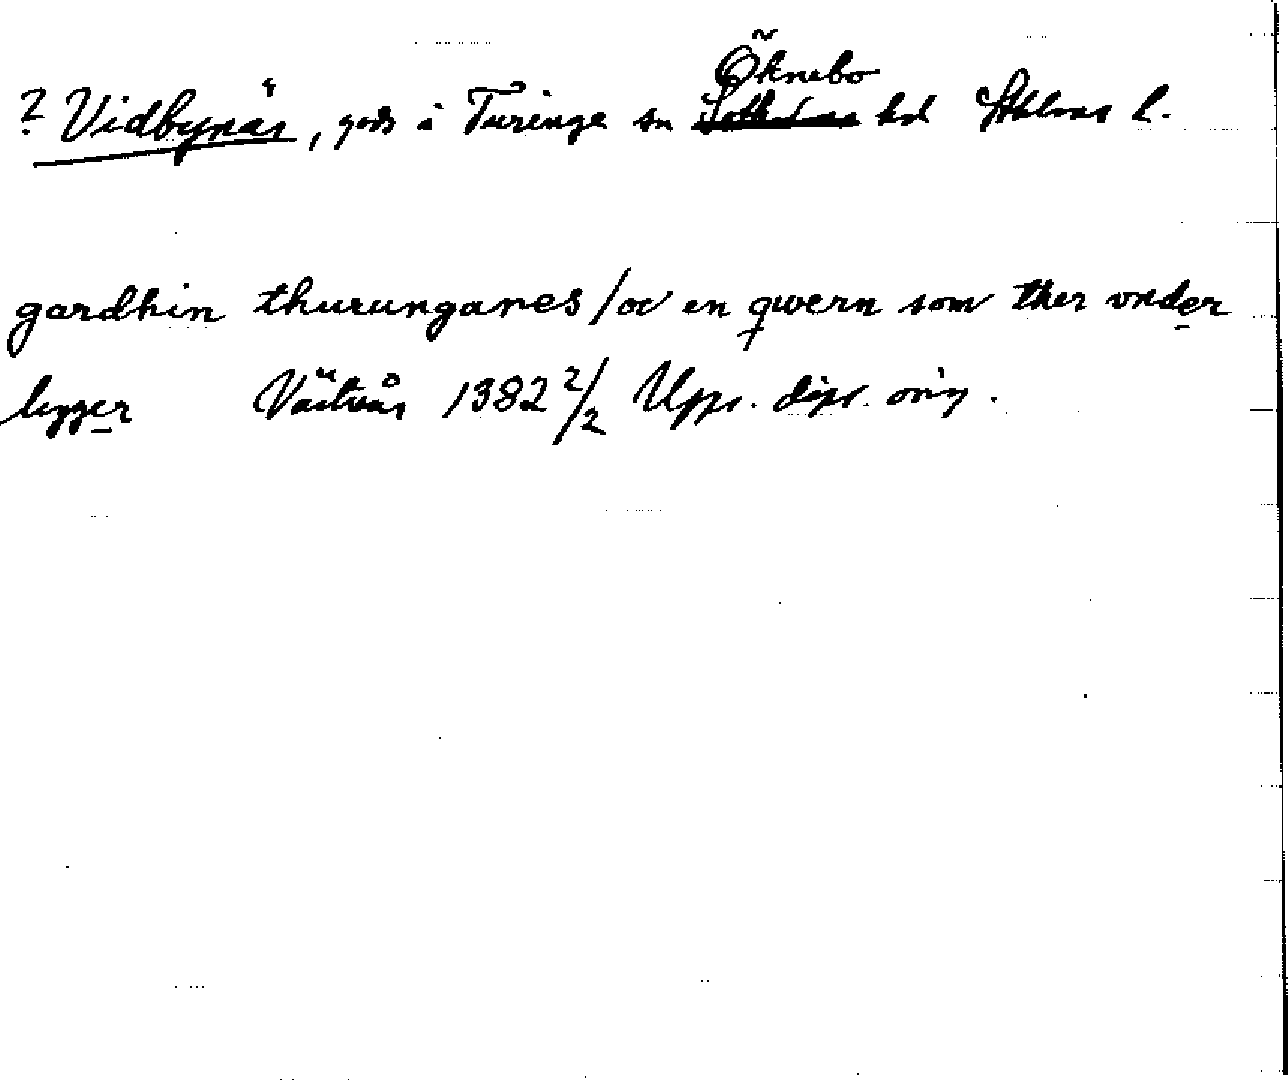 Öknebo
? Vidbynäs, gods i Turinge sn hd Sthlms l.
gardhin thurunganes / oc en qwern som ther vnder
legger Västerås 1382 2/2 Upps. dipl. orig.